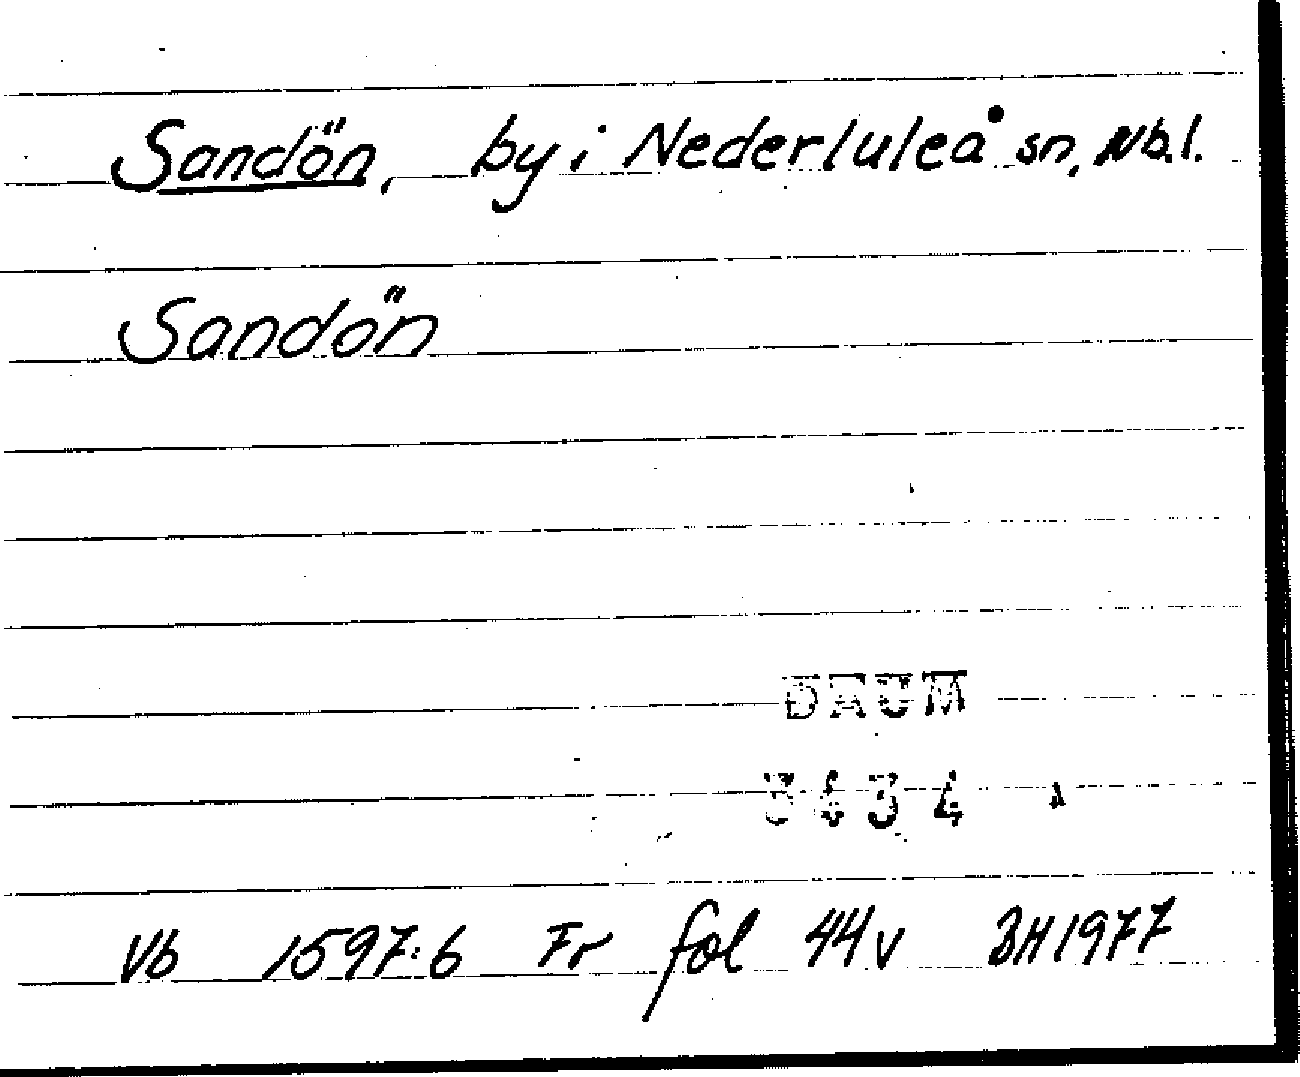 Sandön, by i Nederluleå sn, Nb.l.
Sandön
DAUM
3434 A
Vb 1597:6 Fr fol 44v BH 1977